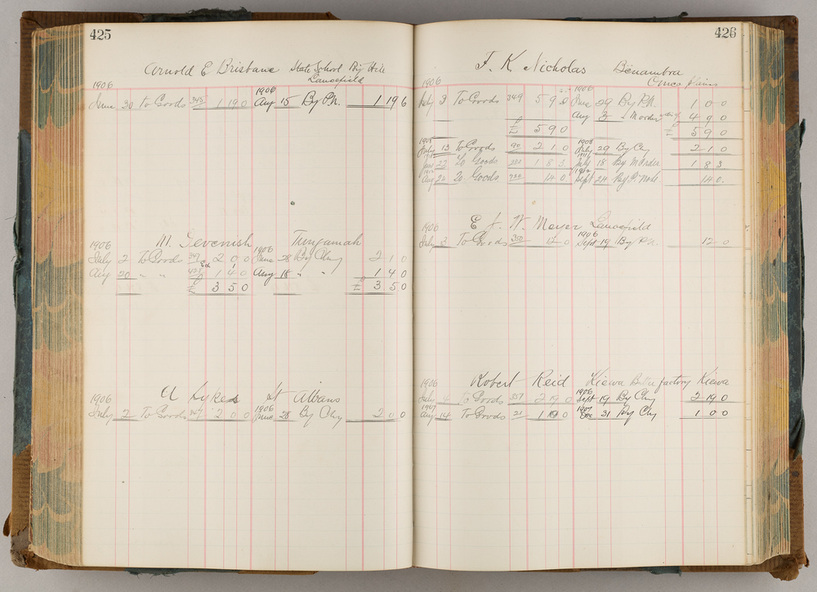 425
Arnold E Brisbane State School Big Hill
Lancefield
1906 1906
June 20 To Goods 1 19 0 Aug 15 By P.N. 1 19 6
M. Devenish Tungamah
1906 1906
July 2 To Goods 2 0 0 June 28 By Chq 2 1 0
Aug 20 " " 1 4 0 Aug 18 " " 1 4 0
£ 3 5 0 £ 3 5 0
A Sykes St Albans
1906 1906
July 2 To Goods 2 0 0 June 28 By Chq 2 0 0
426
F. K Nicholas Benambra
Omeo Plains
1906 1906
July 3 To Goods 349 5 9 0 June 29 By P.N. 1 0 0
Aug 4 9 0
£ 5 9 0 £ 5 9 0
13 To Goods 2 1 0 29 By Chq 2 1 0
To Goods 1 8 3 July 18 By M Order 1 8 3
Aug 24 To Goods 14 0 Sept 24 By P. Note 14 0
E. J. W. Meyer Lancefield
1906 1906
July 3 To Goods 12 0 Sept 19 By P.N. 12 0
Robert Reid Kiewa Butter factory Kiewa
1906 1906
July To Goods 2 19 0 Sept 19 By Chq 2 19 0
1907 1907
Aug 14 To Goods 21 1 0 0 Dec 31 By Chq 1 0 0